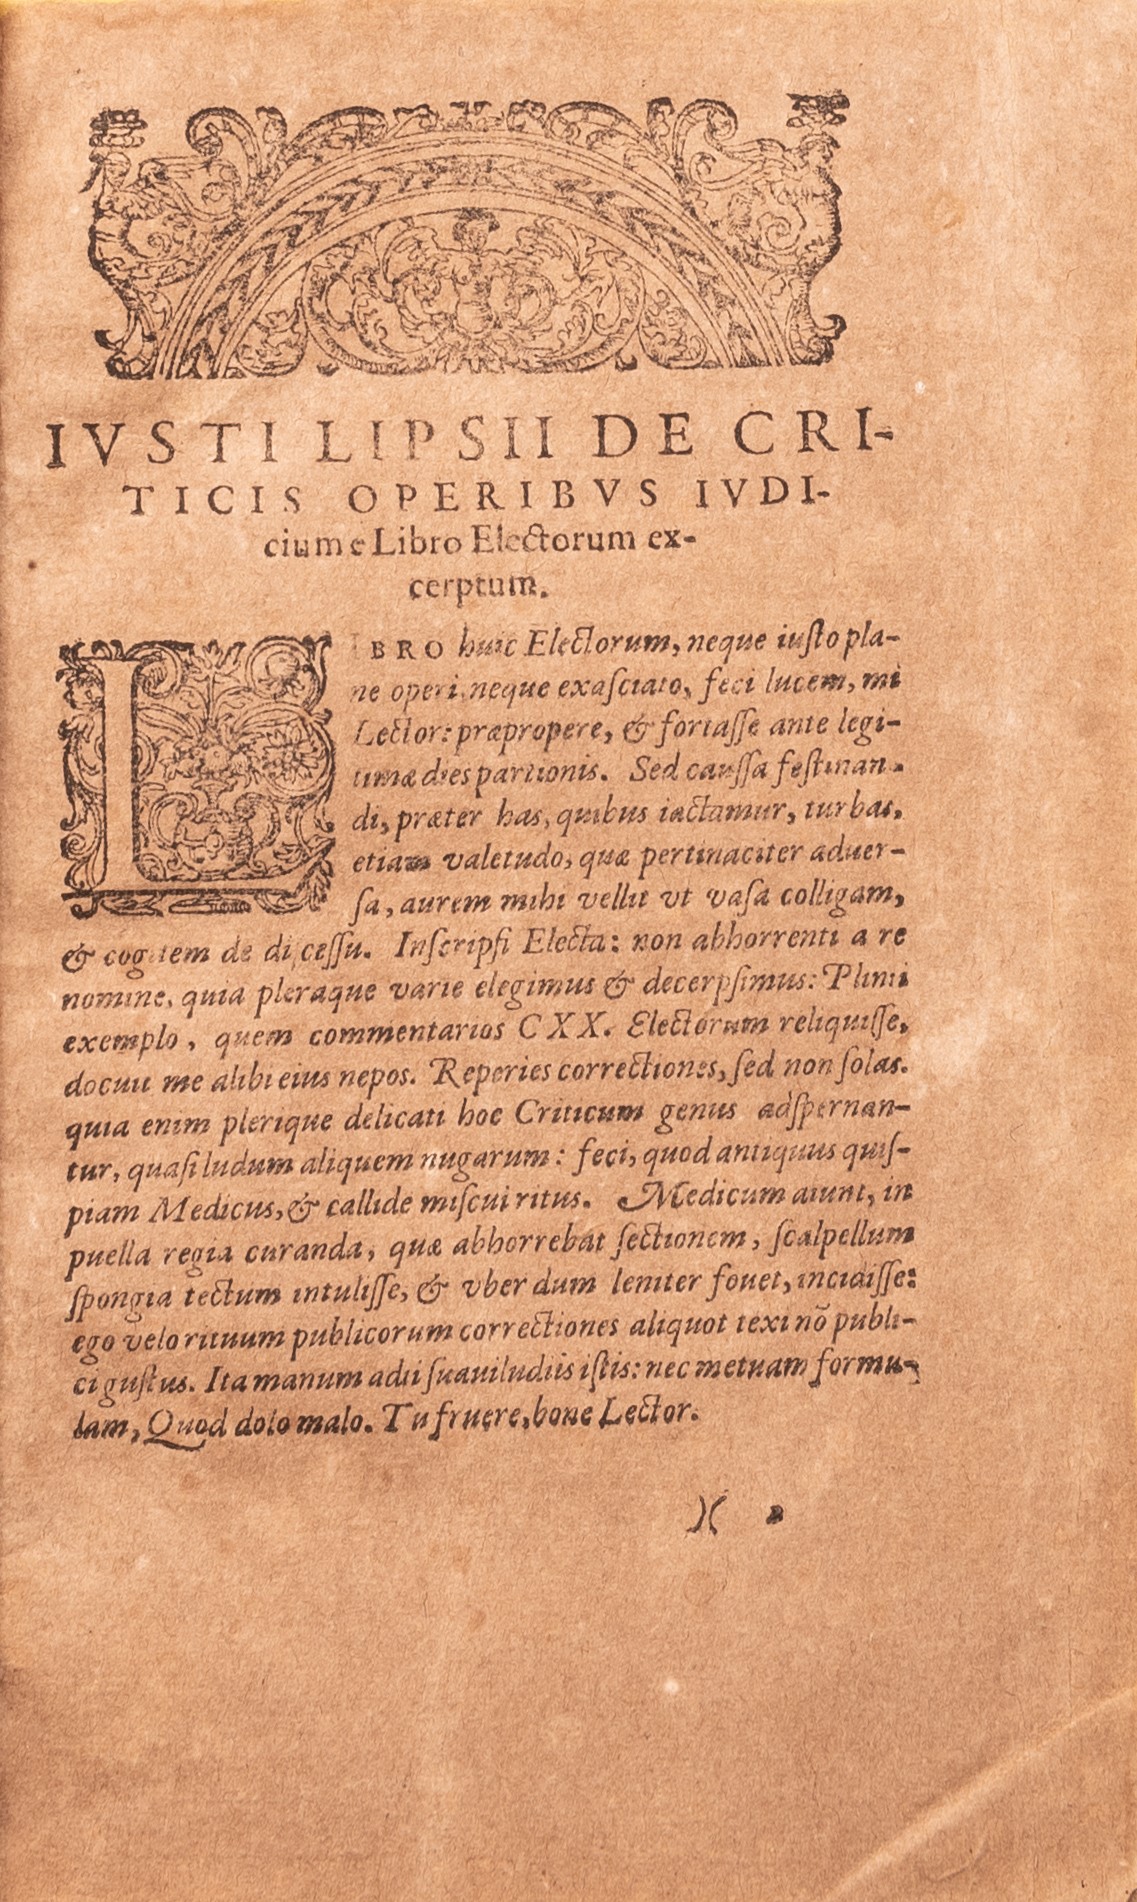 IVSTI LIPSII DE CRI-
TICIS OPERIBVS IVDI-
cium e Libro Electorum ex-
cerptum.
LIBRO huic Electorum, neque iuſto pla-
ne operi, neque exaſciato, feci lucem, mi
Lector: præpropere, & fortaſſe ante legi-
timæ dies partionis. Sed cauſſa feſtinan-
di, præter has, quibus iactamur, turbas,
etiam valetudo, quæ pertinaciter aduer-
ſa, aurem mihi vellit vt vaſa colligam,
& cogitem de diſceſſu. Inſcripſi Electa: non abhorrenti a re
nomine, quia pleraque varie elegimus & decerpſimus: Plinii
exemplo, quem commentarios CXX. Electorum reliquiſſe,
docuit me alibi eius nepos. Reperies correctiones, ſed non ſolas.
quia enim plerique delicati hoc Criticum genus adſpernan-
tur, quaſi ludum aliquem nugarum: feci, quod antiquus quiſ-
piam Medicus, & callide miſcui ritus. Medicum aiunt, in
puella regia curanda, quæ abhorrebat ſectionem, ſcalpellum
ſpongia tectum intuliſſe, & vber dum leniter fouet, incidiſſe:
ego velo rituum publicorum correctiones aliquot texi nõ publi-
ci guſtus. Ita manum adii ſuauiludiis iſtis: nec metuam formu-
lam, Quod dolo malo. Tu fruere, bone Lector.
)( 2